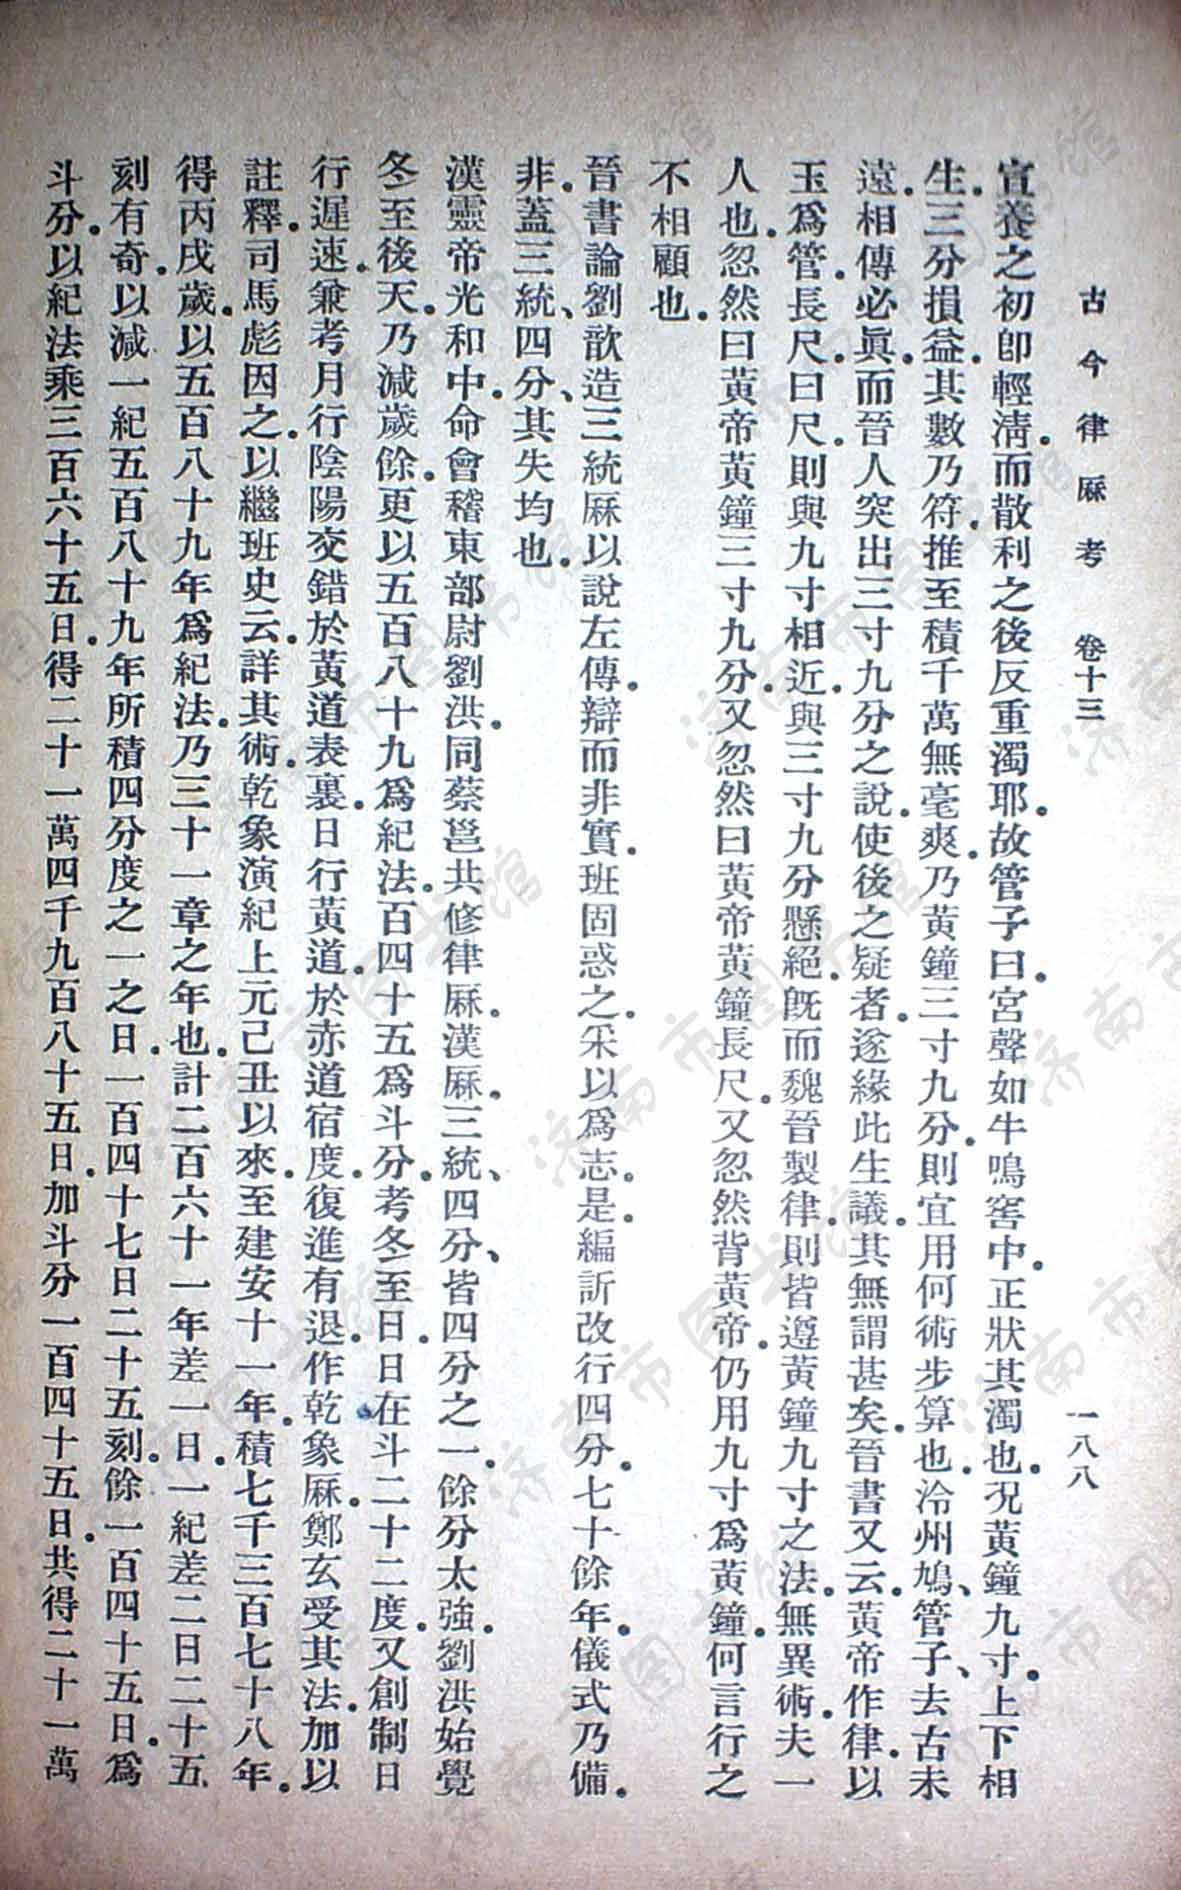 古今律厤考　卷十三　一八八
宣養之初卽輕淸。而散利之後反重濁耶。故管子曰。宮聲如牛鳴窖中。正狀其濁也。況黃鐘九寸。上下相
生。三分損益。其數乃符。推至積千萬無毫爽。乃黃鐘三寸九分。則宜用何術步算也。泠州鳩、管子、去古未
遠。相傳必眞。而晉人突出三寸九分之說。使後之疑者。遂緣此生議。其無謂甚矣。晉書又云。黃帝作律。以
玉爲管。長尺。曰尺。則與九寸相近。與三寸九分懸絕。旣而魏晉製律。則皆遵黃鐘九寸之法。無異術。夫一
人也。忽然曰黃帝黃鐘三寸九分。又忽然曰黃帝黃鐘長尺。又忽然背黃帝。仍用九寸爲黃鐘。何言行之
不相顧也。
晉書論劉歆造三統厤以說左傳。辯而非實。班固惑之。采以爲志。是編訢改行四分。七十餘年。儀式乃備。
非。蓋三統、四分、其失均也。
漢靈帝光和中。命會稽東部尉劉洪。同蔡邕共修律厤。漢厤。三統、四分、皆四分之一。餘分太強。劉洪始覺
冬至後天。乃減歲餘。更以五百八十九爲紀法。百四十五爲斗分。考冬至日。日在斗二十二度。又創制日
行遲速。兼考月行陰陽交錯於黃道表裏。日行黃道。於赤道宿度。復進有退。作乾象厤。鄭玄受其法。加以
註釋。司馬彪因之。以繼班史云。詳其術。乾象演紀上元己丑以來。至建安十一年。積七千三百七十八年。
得丙戌歲。以五百八十九年爲紀法。乃三十一章之年也。計二百六十一年差一日。一紀差二日二十五
刻有奇。以減一紀五百八十九年所積四分度之一之日。一百四十七日二十五刻。餘一百四十五日。爲
斗分。以紀法乘三百六十五日。得二十一萬四千九百八十五日。加斗分一百四十五日。共得二十一萬